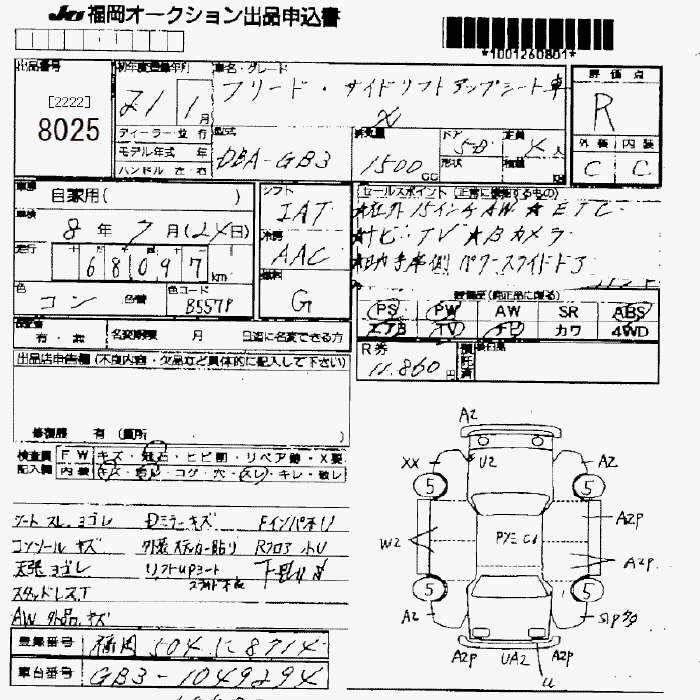 JU 福岡オークション出品申込書
*1001260801*
出品番号
[2222]
8025
初年度登録年月
21 1 月
ディーラー・並行
モデル年式 年
ハンドル 左・右
車名・グレード
フリード・サイドリフトアップシート車
X
型式
DBA-GB3
排気量
1500 CC
ドア
5D
形状
定員
積量
評価点
R
外装 内装
C C
車歴
自家用( )
車検
8 年 7 月(24日)
走行
68097 km
色
コン 色替
色コード
B557P
シフト
IAT
冷房
AAC
燃料
G
セールスポイント (正常に機能するもの)
★社外15インチAW ★ETC
★ナビ・TV ★Bカメラ
パワースライドドア
装備品(純正品に限る)
PS PW AW SR ABS
エアB TV ナビ カワ 4WD
有・無 名変期限 月 日迄に名変できる方
R券
11.860 円
預託済
出品店申告欄 (不良内容・欠品など具体的に記入して下さい)
修復歴 有 (箇所 )
検査員 FW キズ・飛石・ヒビ割・リペア跡・X要
記入欄 内装 キズ・汚れ・コゲ・穴・スレ・キレ・破レ
シート スレ.ヨゴレ Dミラーキズ Fインパネリ
コンソール キズ 外装 ステッカー貼り Rフロア 小U
天張ヨゴレ リフトUPシート
スタッドレスT
AW 外品.キズ
登録番号 福岡 504 に 8714
車台番号 GB3-1049294
A2
XX U2 A2
5 5
A2P
W2
A2P
5 5
A2
A2P UA2 A2P
U